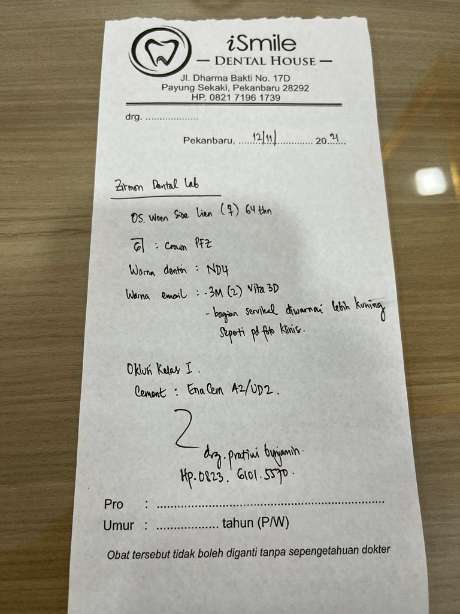 iSmile
— DENTAL HOUSE —
Jl. Dharma Bakti No. 17D
Payung Sekaki, Pekanbaru 28292
HP. 0821 7196 1739
drg. ...................
Pekanbaru, ....12/11/............. 20.21..
Zirmon Dental Lab
OS. Woen Sioe Lian (♀) 64 thn
6 : Crown PFZ
Warna dentin : ND4
Warna email : - 3M (2) Vita 3D
- bagian servikal diwarnai lebih kuning
Seperti pd foto klinis.
Oklusi Kelas I.
Cement : Ena Cem A2/UD2.
drg. pratiwi bunjamin.
Hp. 0823. 6101. 5570.
Pro : .......................................................
Umur : ................... tahun (P/W)
Obat tersebut tidak boleh diganti tanpa sepengetahuan dokter